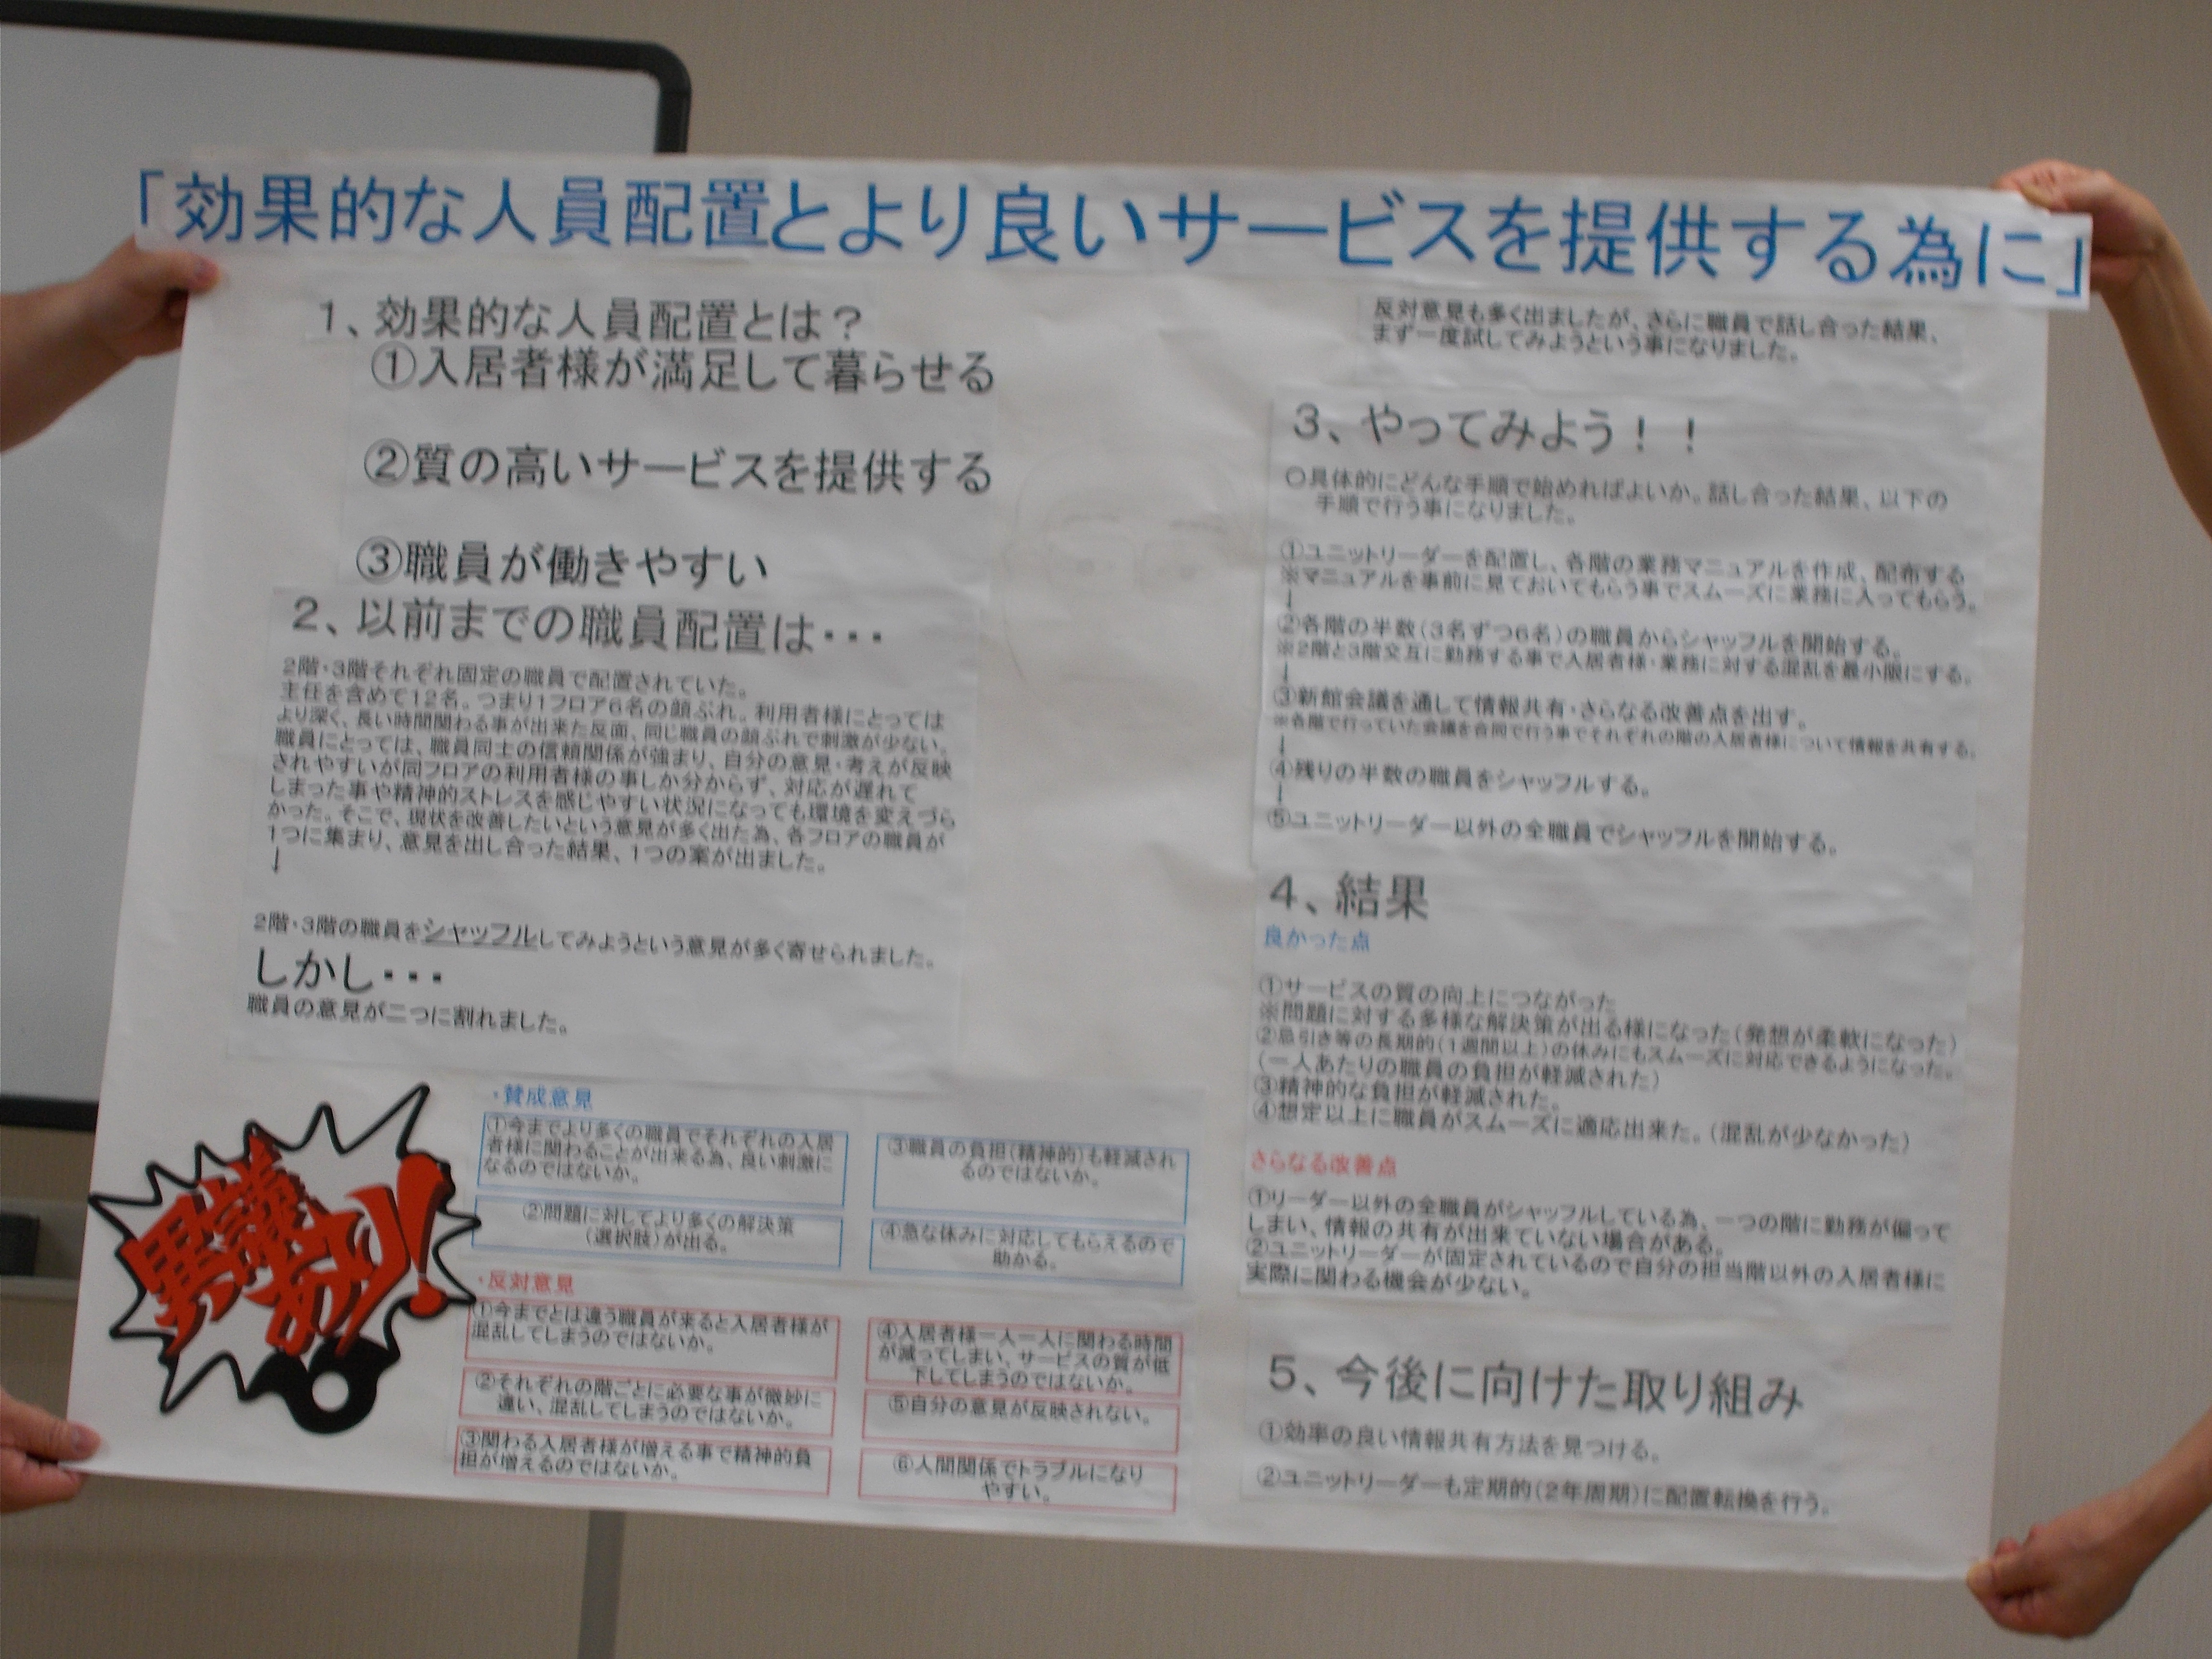 「効果的な人員配置とより良いサービスを提供する為に」
1、効果的な人員配置とは？
①入居者様が満足して暮らせる
②質の高いサービスを提供する
③職員が働きやすい
2、以前までの職員配置は・・・
2階・3階それぞれ固定の職員で配置されていた。
主任を含めて12名。つまり1フロア6名の顔ぶれ。利用者様にとっては
より深く、長い時間関わる事が出来た反面、同じ職員の顔ぶれで刺激が少ない。
職員にとっては、職員同士の信頼関係が強まり、自分の意見・考えが反映
されやすいが同フロアの利用者様の事しか分からず、対応が遅れて
しまった事や精神的ストレスを感じやすい状況になっても環境を変えづら
かった。そこで、現状を改善したいという意見が多く出た為、各フロアの職員が
1つに集まり、意見を出し合った結果、1つの案が出ました。
↓
2階・3階の職員をシャッフルしてみようという意見が多く寄せられました。
しかし・・・
職員の意見が二つに割れました。
異議あり!
・賛成意見
①今までより多くの職員でそれぞれの入居
者様に関わることが出来る為、良い刺激に
なるのではないか。
②問題に対してより多くの解決策
（選択肢）が出る。
③職員の負担（精神的）も軽減され
るのではないか。
④急な休みに対応してもらえるので
助かる。
・反対意見
①今までとは違う職員が来ると入居者様が
混乱してしまうのではないか。
②それぞれの階ごとに必要な事が微妙に
違い、混乱してしまうのではないか。
③関わる入居者様が増える事で精神的負
担が増えるのではないか。
④入居者様一人一人に関わる時間
が減ってしまい、サービスの質が低
下してしまうのではないか。
⑤自分の意見が反映されない。
⑥人間関係でトラブルになり
やすい。
反対意見も多く出ましたが、さらに職員で話し合った結果、
まず一度試してみようという事になりました。
3、やってみよう！！
○具体的にどんな手順で始めればよいか。話し合った結果、以下の
手順で行う事になりました。
①ユニットリーダーを配置し、各階の業務マニュアルを作成、配布する
※マニュアルを事前に見ておいてもらう事でスムーズに業務に入ってもらう。
↓
②各階の半数（3名ずつ6名）の職員からシャッフルを開始する。
※2階と3階交互に勤務する事で入居者様・業務に対する混乱を最小限にする。
↓
③新館会議を通して情報共有・さらなる改善点を出す。
※各階で行っていた会議を合同で行う事でそれぞれの階の入居者様について情報を共有する。
↓
④残りの半数の職員をシャッフルする。
↓
⑤ユニットリーダー以外の全職員でシャッフルを開始する。
4、結果
良かった点
①サービスの質の向上につながった
※問題に対する多様な解決策が出る様になった（発想が柔軟になった）
②忌引き等の長期的（1週間以上）の休みにもスムーズに対応できるようになった。
（一人あたりの職員の負担が軽減された）
③精神的な負担が軽減された。
④想定以上に職員がスムーズに適応出来た。（混乱が少なかった）
さらなる改善点
①リーダー以外の全職員がシャッフルしている為、一つの階に勤務が偏って
しまい、情報の共有が出来ていない場合がある。
②ユニットリーダーが固定されているので自分の担当階以外の入居者様に
実際に関わる機会が少ない。
5、今後に向けた取り組み
①効率の良い情報共有方法を見つける。
②ユニットリーダーも定期的（2年周期）に配置転換を行う。